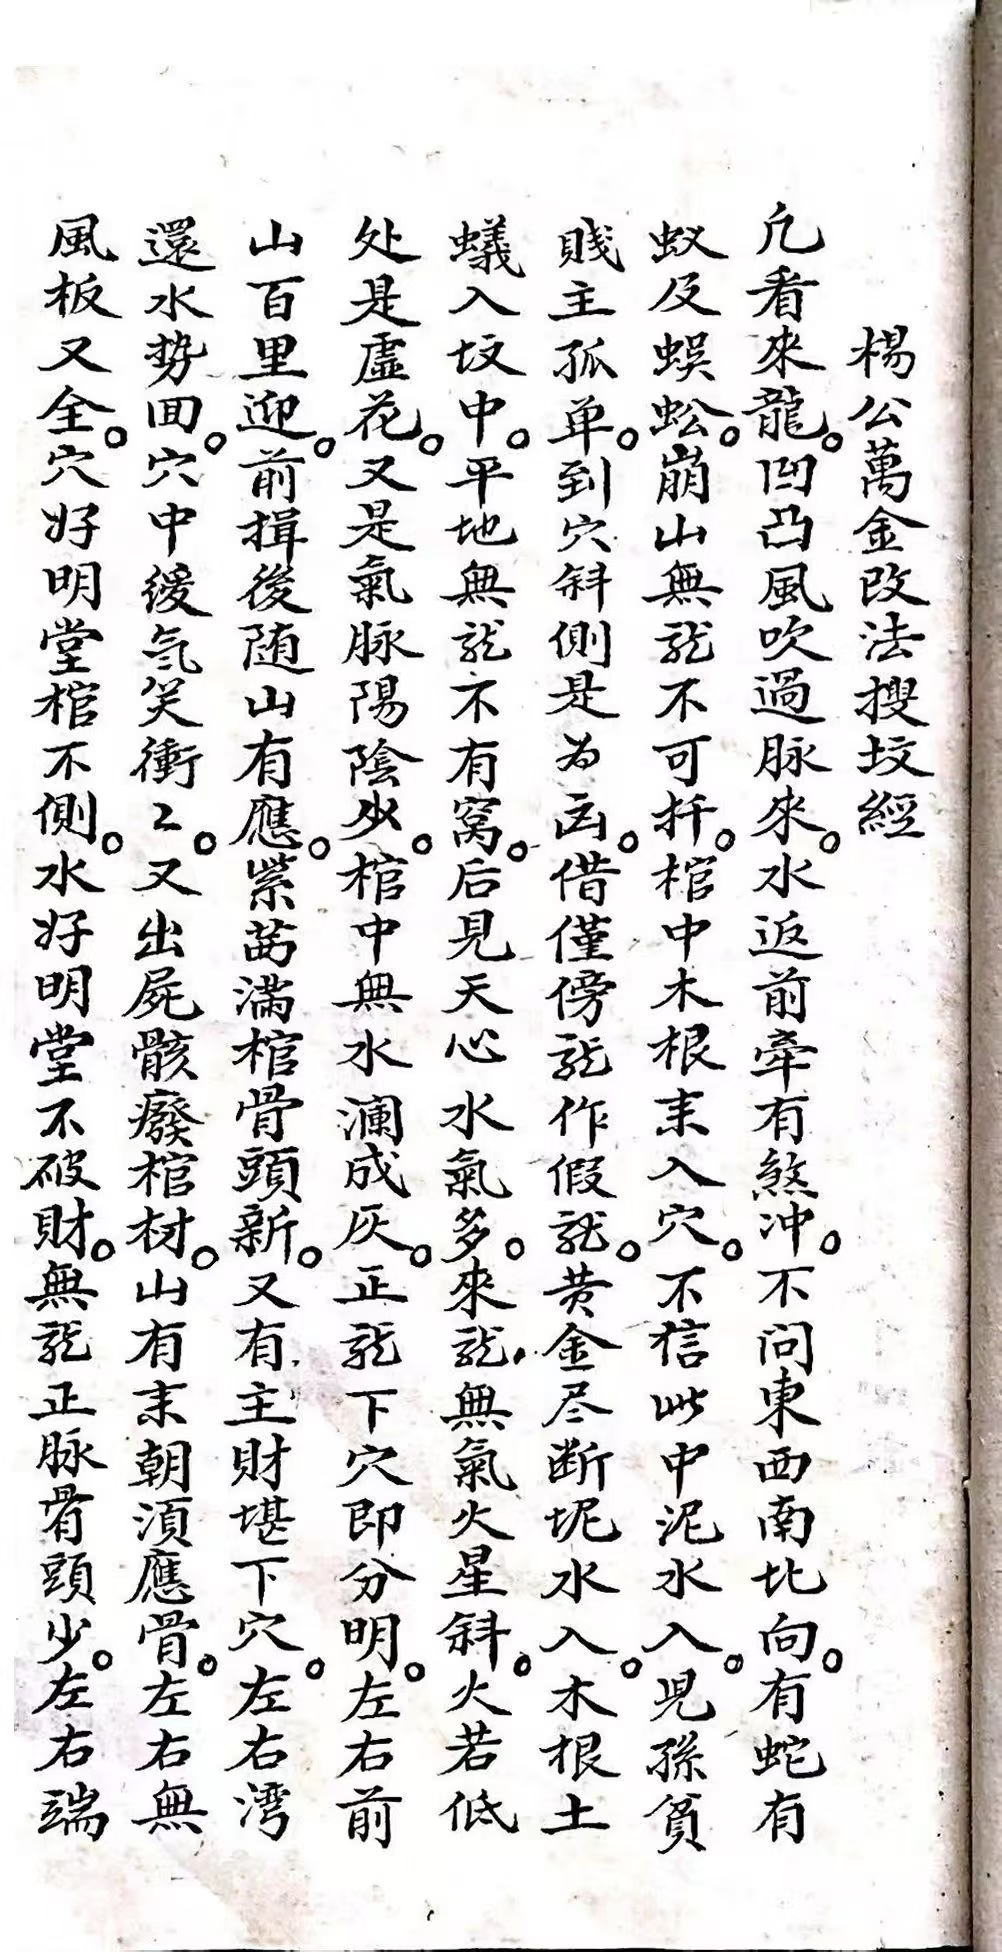 楊公萬金改法搜坟經
凢看來龍。凹凸風吹過脉來。水返前牽有煞冲。不问東西南北向。有蛇有
蚁及蜈蚣。崩山無龙不可扦。棺中木根来入穴。不信此中泥水入。児孫貧
賤主孤单。到穴斜側是为凶。借僅傍龙作假龙。黄金尽断坭水入。木根土
蟻入坟中。平地無龙不有窩。后見天心水氣多。來龙無氣火星斜。火若低
处是虚花。又是氣脉陽陰少。棺中無水澜成灰。正龙下穴即分明。左右前
山百里迎。前揖後随山有應。紫茜满棺骨頭新。又有主財堪下穴。左右湾
還水势囬。穴中缓氣笑衝〻。又出屍骸癈棺材。山有来朝湏應骨。左右無
風板又全。穴好明堂棺不側。水好明堂不破財。無龙正脉骨頭少。左右端